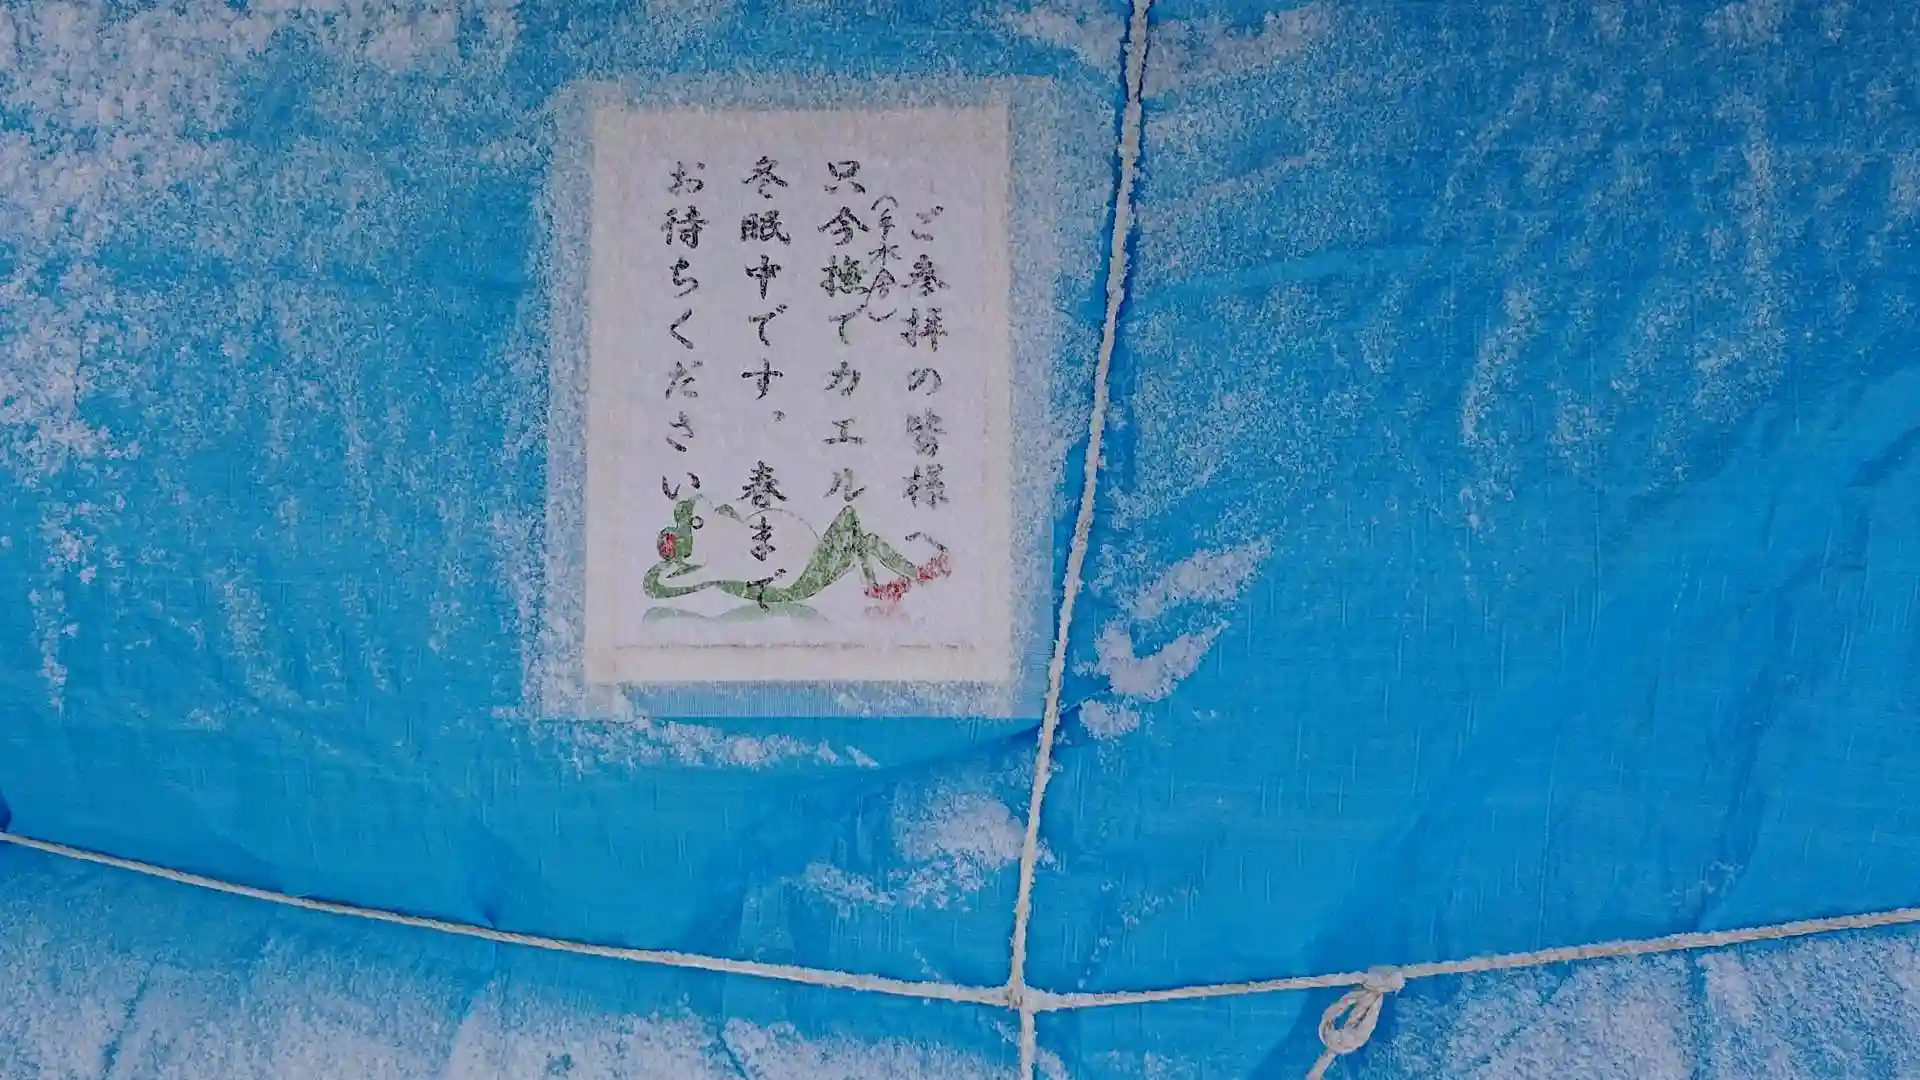 ご参拝の皆様へ
(手水舎)
只今撫でカエル
冬眠中です、春まで
お待ちください。